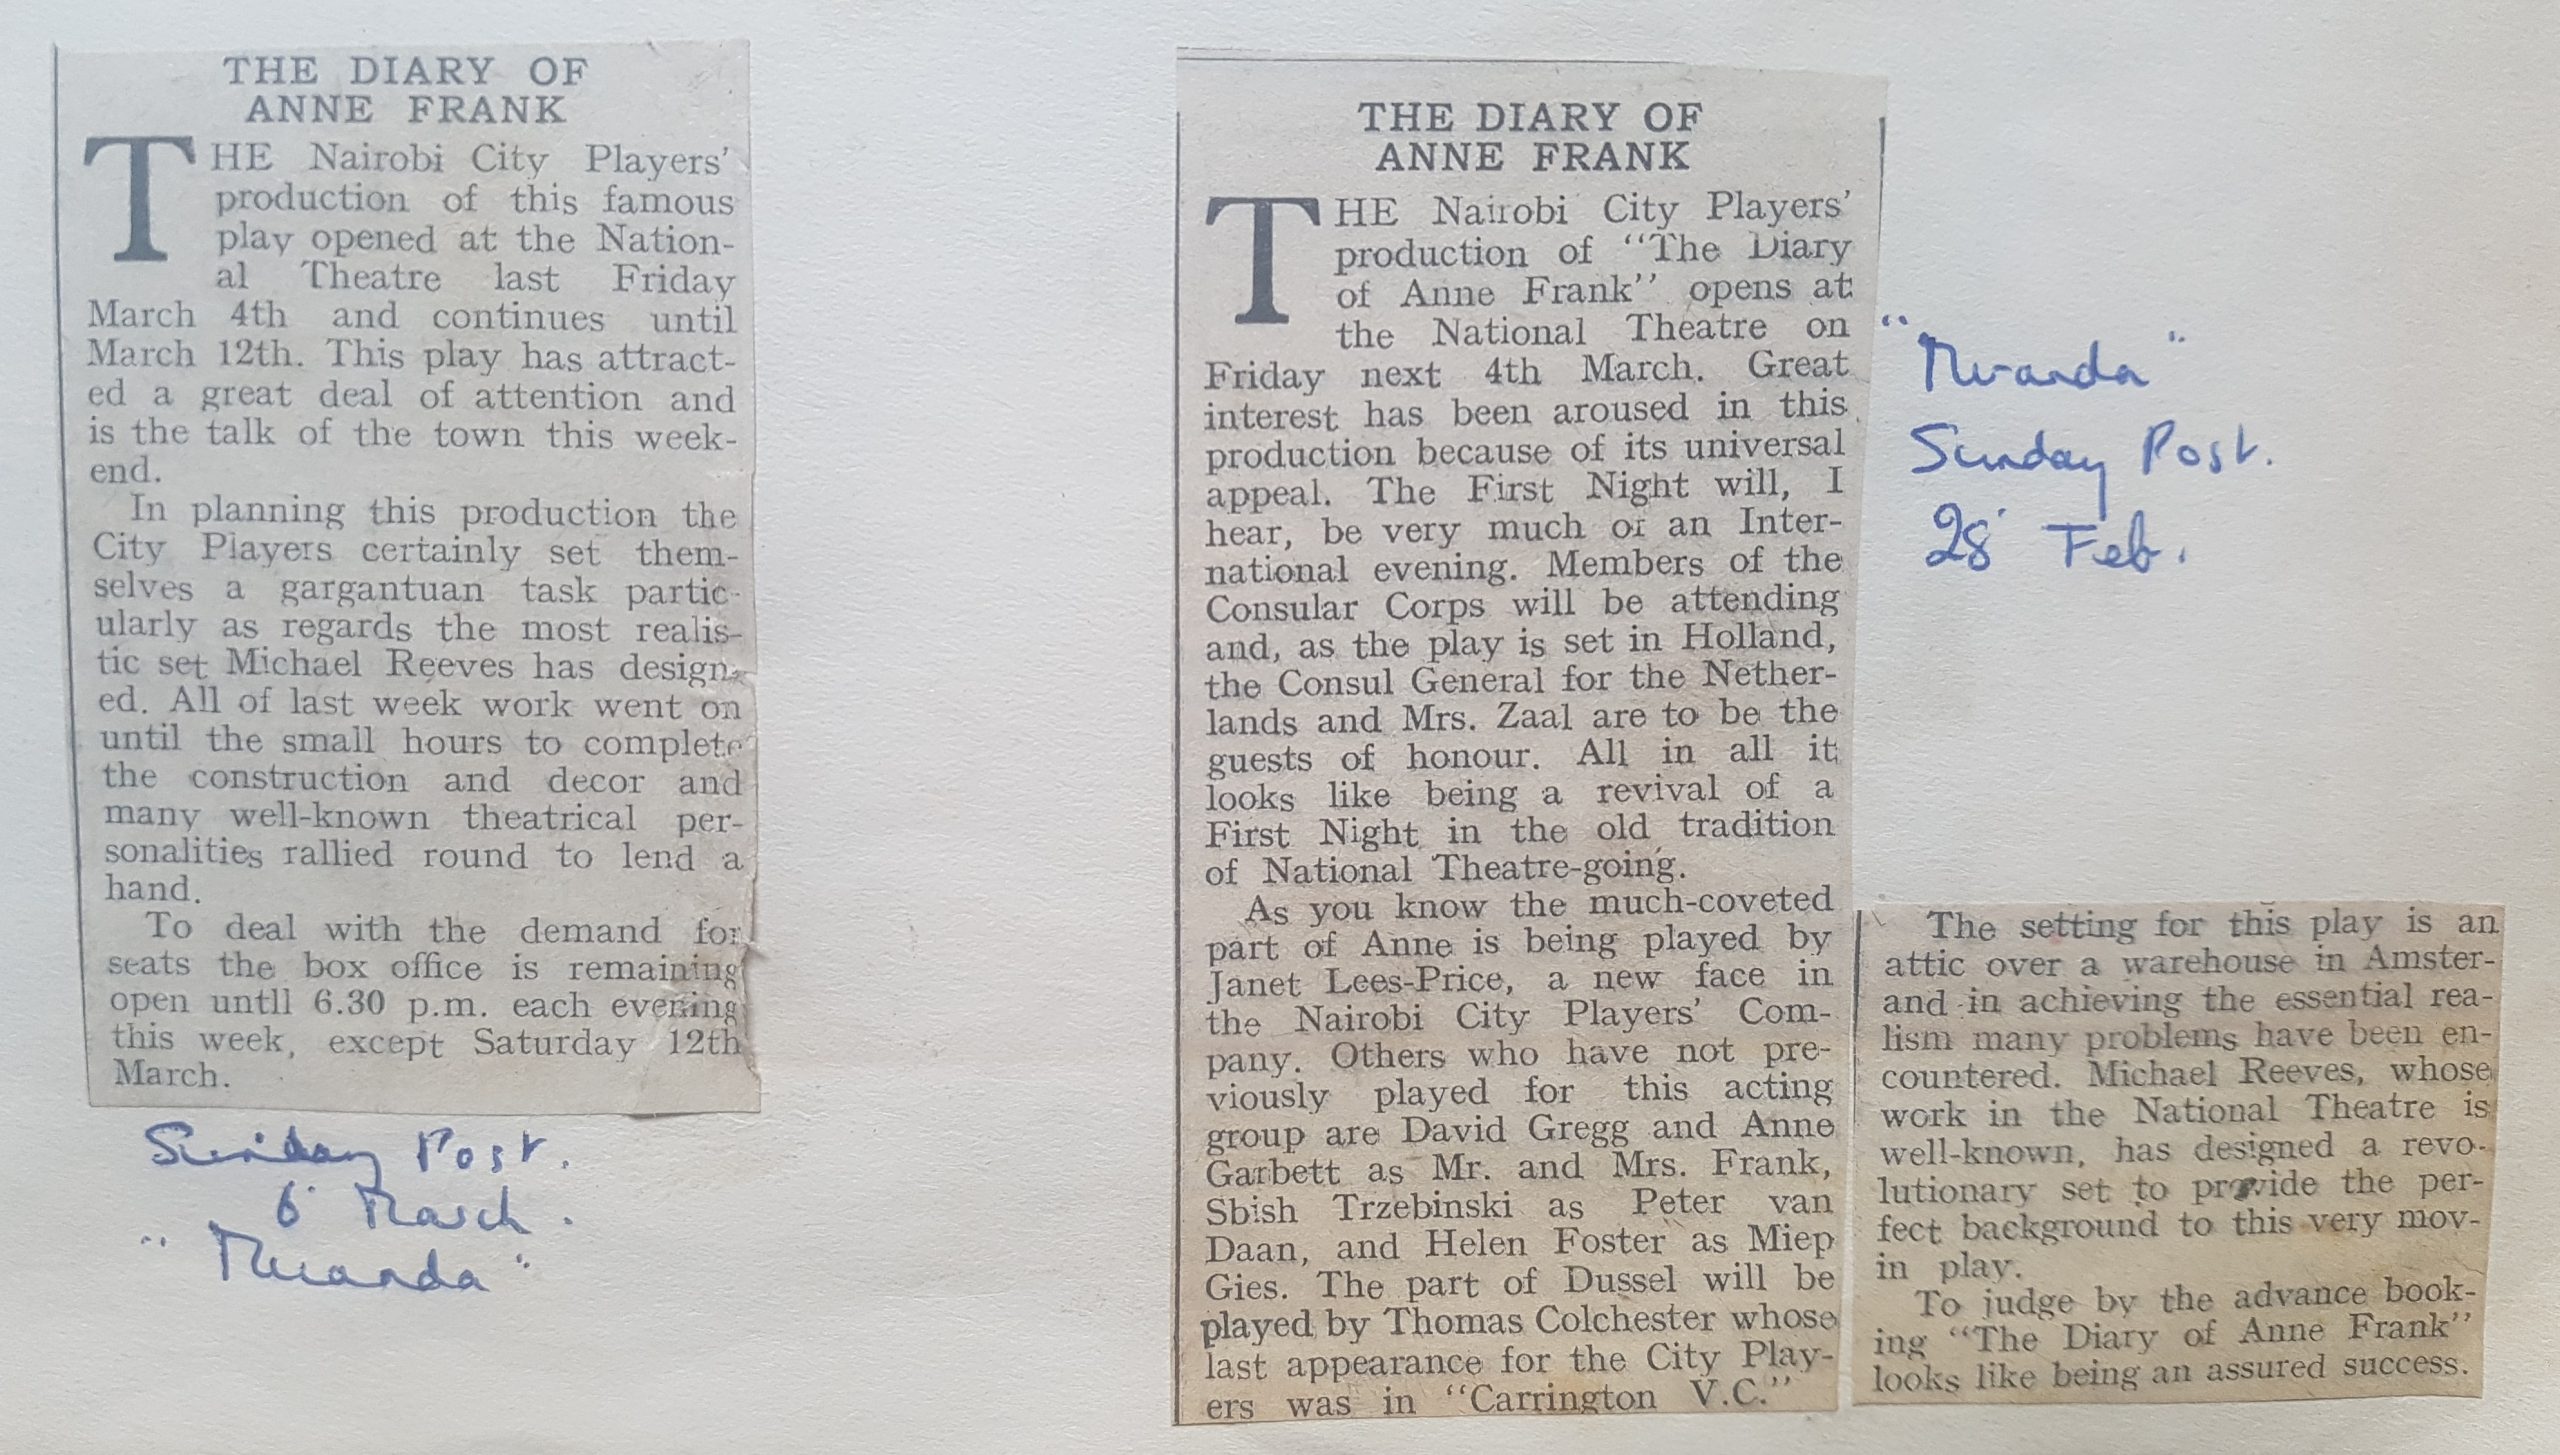 THE DIARY OF
ANNE FRANK
THE Nairobi City Players'
production of this famous
play opened at the Nation-
al Theatre last Friday
March 4th and continues until
March 12th. This play has attract-
ed a great deal of attention and
is the talk of the town this week-
end.
In planning this production the
City Players certainly set them-
selves a gargantuan task partic-
ularly as regards the most realis-
tic set Michael Reeves has design-
ed. All of last week work went on
until the small hours to complete
the construction and decor and
many well-known theatrical per-
sonalities rallied round to lend a
hand.
To deal with the demand for
seats the box office is remaining
open until 6.30 p.m. each evening
this week, except Saturday 12th
March.
Sunday Post.
6 March.
"Miranda"
THE DIARY OF
ANNE FRANK
THE Nairobi City Players'
production of "The Diary
of Anne Frank" opens at
the National Theatre on
Friday next 4th March. Great
interest has been aroused in this
production because of its universal
appeal. The First Night will, I
hear, be very much of an Inter-
national evening. Members of the
Consular Corps will be attending
and, as the play is set in Holland,
the Consul General for the Nether-
lands and Mrs. Zaal are to be the
guests of honour. All in all it
looks like being a revival of a
First Night in the old tradition
of National Theatre-going.
As you know the much-coveted
part of Anne is being played by
Janet Lees-Price, a new face in
the Nairobi City Players' Com-
pany. Others who have not pre-
viously played for this acting
group are David Gregg and Anne
Garbett as Mr. and Mrs. Frank,
Sbish Trzebinski as Peter van
Daan, and Helen Foster as Miep
Gies. The part of Dussel will be
played by Thomas Colchester whose
last appearance for the City Play-
ers was in "Carrington V.C."
"Miranda"
Sunday Post.
28 Feb.
The setting for this play is an
attic over a warehouse in Amster-
and in achieving the essential rea-
lism many problems have been en-
countered. Michael Reeves, whose
work in the National Theatre is
well-known, has designed a revo-
lutionary set to provide the per-
fect background to this very mov-
in play.
To judge by the advance book-
ing "The Diary of Anne Frank"
looks like being an assured success.